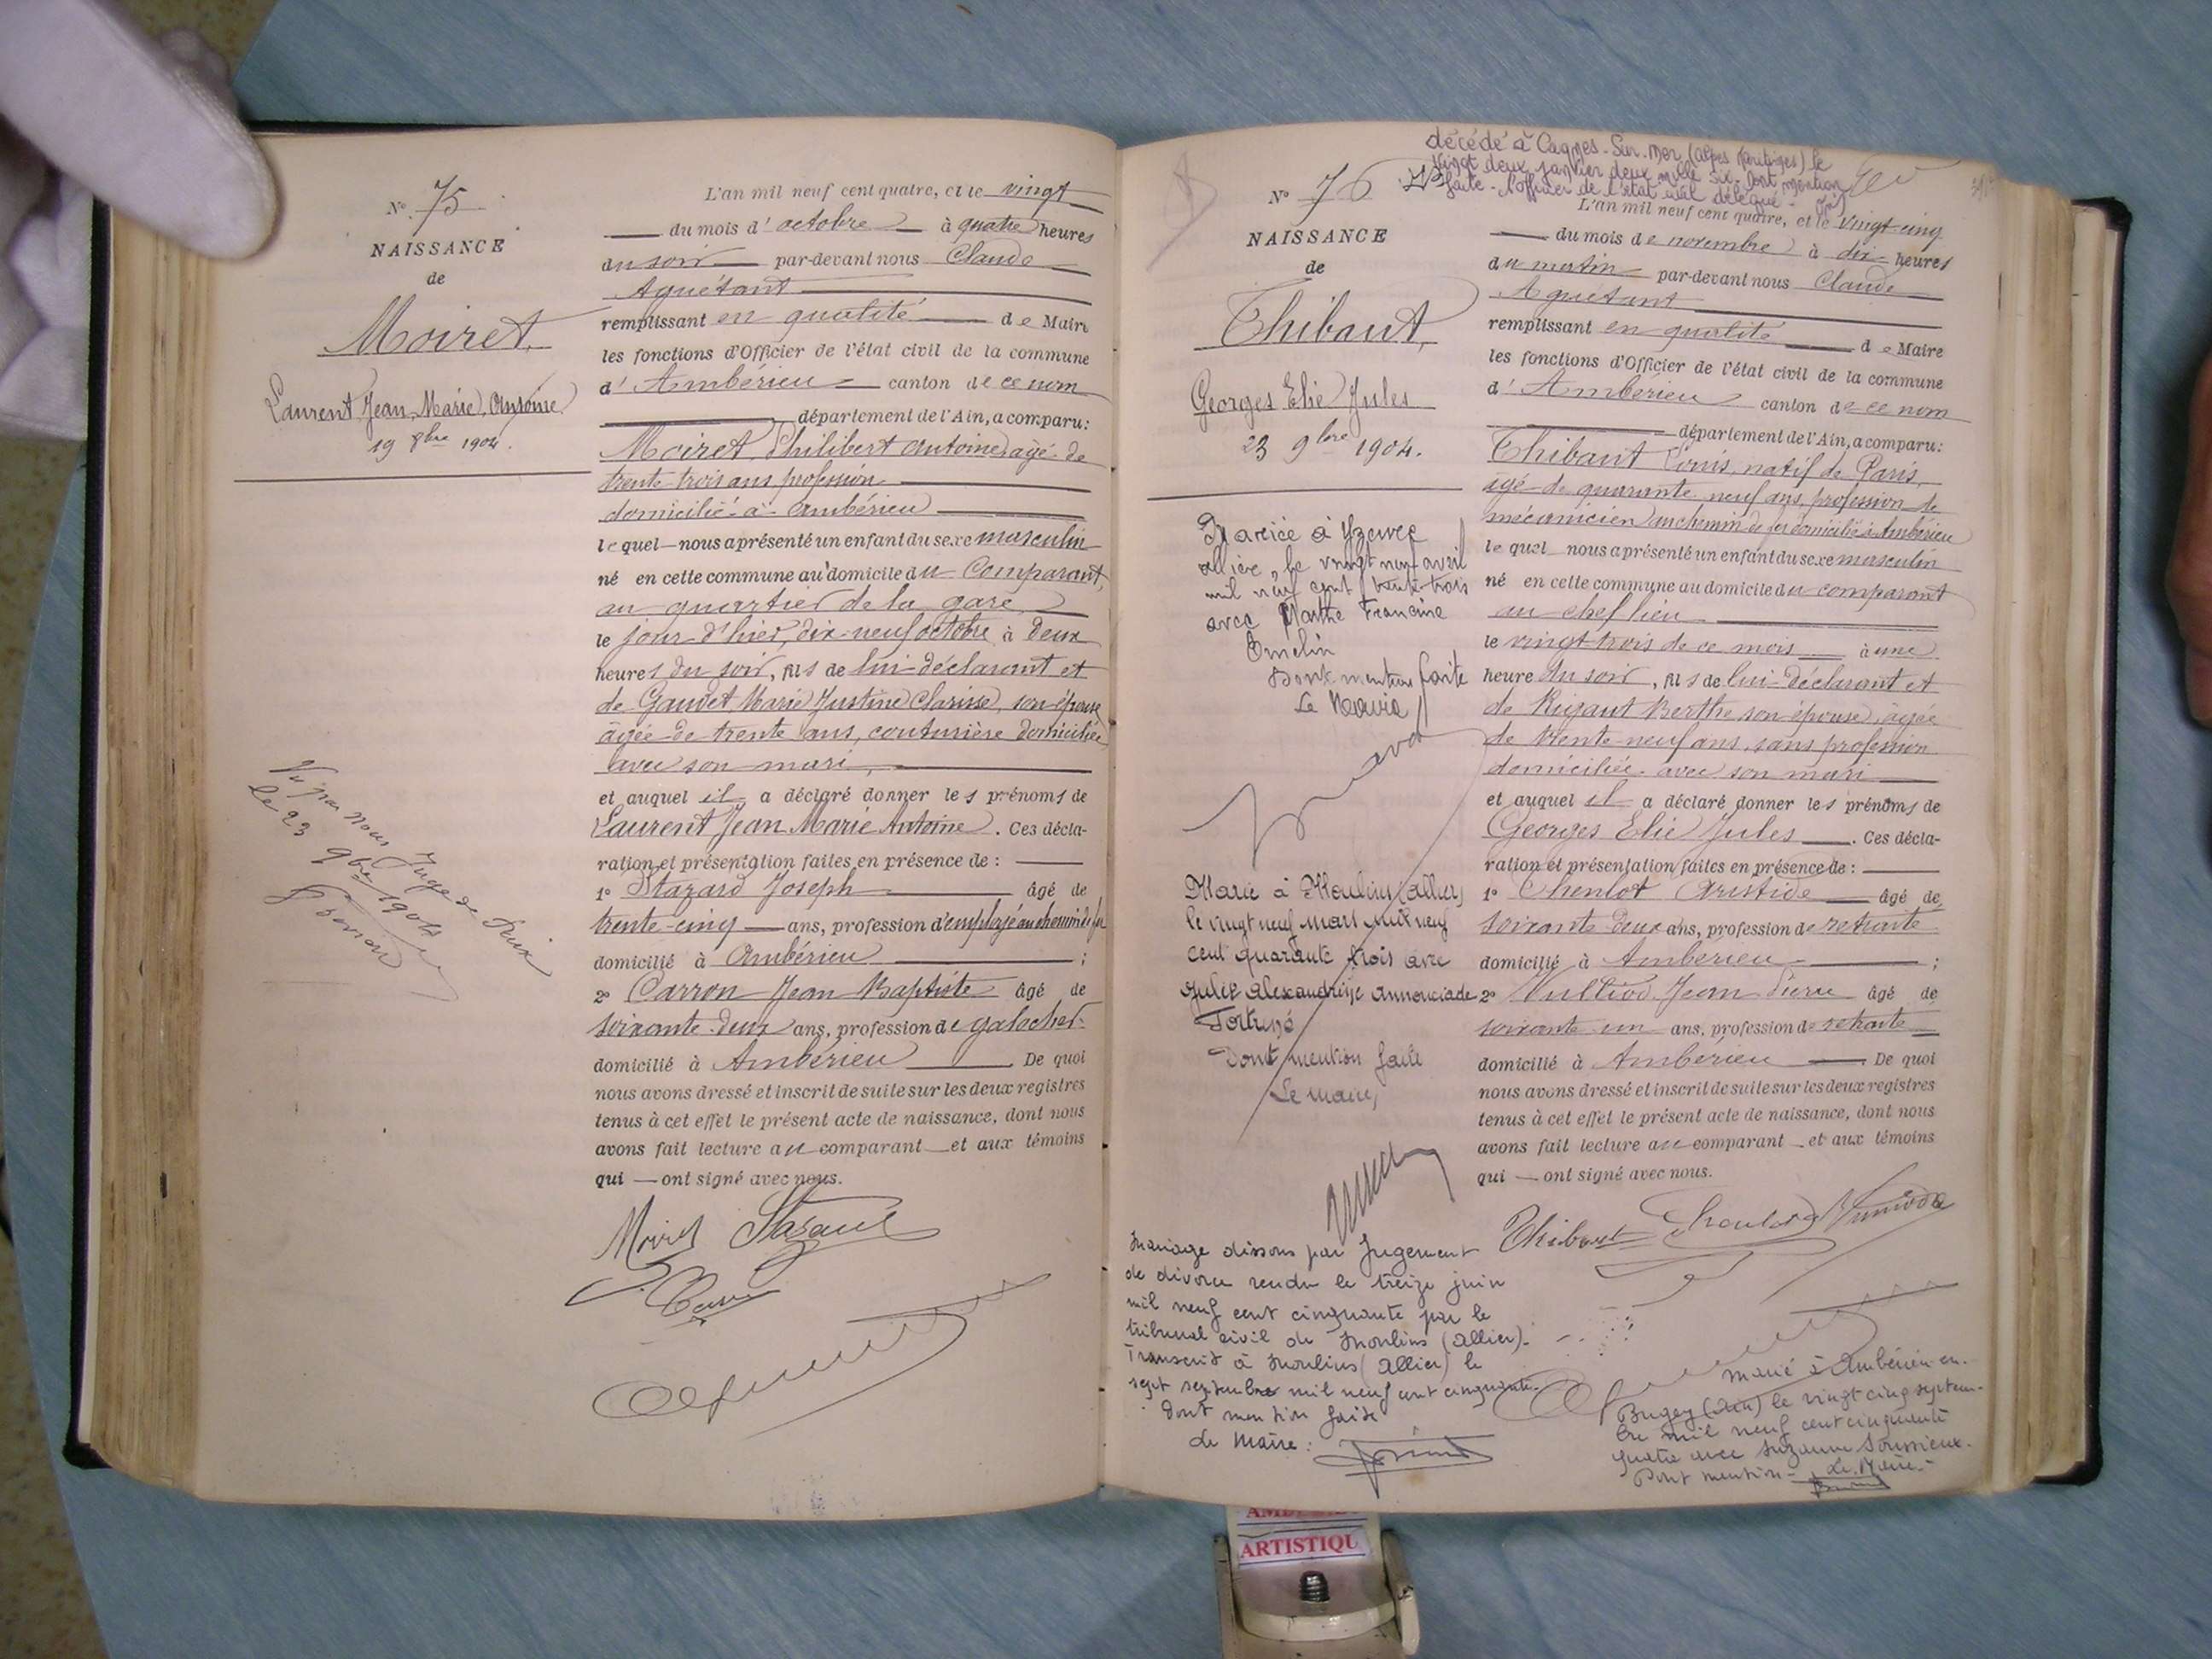 N° 75
NAISSANCE
de
Moiret
Laurent Jean Marie Antoine
19 8bre 1904.
Vu par nous Juge de Paix
le 23 9bre 1904
L'an mil neuf cent quatre, et le vingt
du mois d'octobre à quatre heures
du soir par-devant nous Claude
Aguétant
remplissant en qualité de Maire
les fonctions d'Officier de l'état civil de la commune
d'Ambérieu canton de ce nom
département de l'Ain, a comparu:
Moiret Philibert Antoine âgé de
trente trois ans profession
domicilié à Ambérieu
lequel nous a présenté un enfant du sexe masculin
né en cette commune au domicile du Comparant,
au quartier de la gare
le jour d'hier, dix-neuf octobre à deux
heures du soir, fils de lui déclarant et
de Gaudet Marie Justine Clarisse, son épouse
âgée de trente ans, couturière domiciliée
avec son mari,
et auquel il a déclaré donner les prénoms de
Laurent Jean Marie Antoine. Ces décla-
ration et présentation faites en présence de :
1° Stazard Joseph âgé de
trente-cinq ans, profession d'employé au chemin de fer
domicilié à Ambérieu ;
2° Carron Jean Baptiste âgé de
soixante deux ans, profession de galocher
domicilié à Ambérieu. De quoi
nous avons dressé et inscrit de suite sur les deux registres
tenus à cet effet le présent acte de naissance, dont nous
avons fait lecture au comparant et aux témoins
qui ont signé avec nous.
Moiret
décédé à Cagnes-Sur-Mer (Alpes Maritimes) le
vingt deux janvier deux mille six. Dont mention
faite - l'officier de l'état civil délégué -
N° 76
NAISSANCE
de
Thibaut,
Georges Elie Jules
23 9bre 1904.
Marié à Yzeure
Allier, le vingt neuf avril
mil neuf cent trente-trois
avec Marthe Francine
Emelin
Dont mention faite
Le Maire
Marié à Moulins (Allier)
le vingt neuf Mars mil neuf
cent quarante trois avec
Annonciade
Fortuné
Dont mention faite
Le Maire,
Mariage dissous par Jugement
de divorce rendu le treize juin
mil neuf cent cinquante par le
tribunal civil de Moulins (Allier).
Transcrit à Moulins (Allier) le
sept septembre mil neuf cent cinquante.
Dont mention faite
Le Maire :
L'an mil neuf cent quatre, et le vingt-cinq
du mois de novembre à dix heures
du matin par-devant nous Claude
Aguétant
remplissant en qualité de Maire
les fonctions d'Officier de l'état civil de la commune
d'Ambérieu canton de ce nom
département de l'Ain, a comparu:
Thibaut Louis, natif de Paris,
âgé de quarante neuf ans, profession de
mécanicien au chemin de fer domicilié à Ambérieu
lequel nous a présenté un enfant du sexe masculin
né en cette commune au domicile du comparant
au chef lieu
le vingt trois de ce mois à une
heure du soir, fils de lui déclarant et
de Rigaut Berthe son épouse, âgée
de trente neuf ans, sans profession
domiciliée avec son mari
et auquel il a déclaré donner les prénoms de
Georges Elie Jules. Ces décla-
ration et présentation faites en présence de :
1° Aristide âgé de
soixante deux ans, profession de retraité
domicilié à Ambérieu ;
2° Jean Pierre âgé de
soixante un ans, profession de retraité
domicilié à Ambérieu. De quoi
nous avons dressé et inscrit de suite sur les deux registres
tenus à cet effet le présent acte de naissance, dont nous
avons fait lecture au comparant et aux témoins
qui ont signé avec nous.
Thibaut
Marié à Ambérieu-en-
Bugey (Ain) le vingt cinq septem-
bre mil neuf cent cinquante
quatre avec Suzanne Soussieux.
Dont mention - Le Maire -
ARTISTIQU